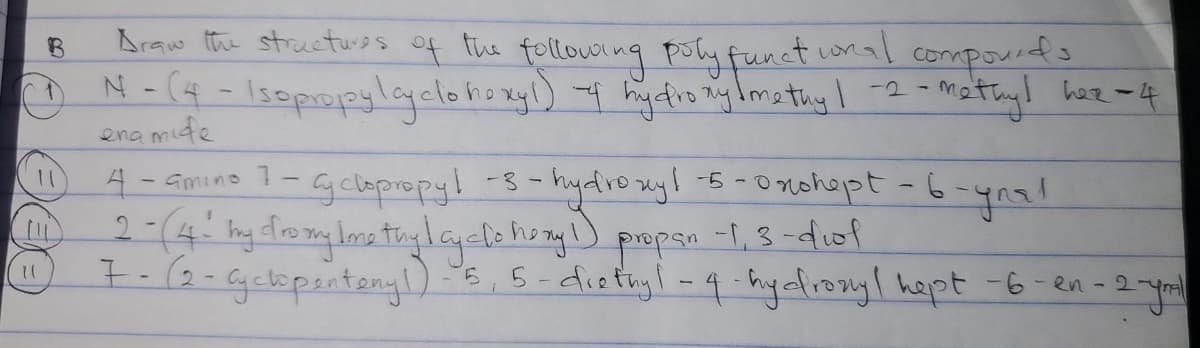 B Draw the structures of the following poly functional compounds
(1) N - (4 - Isopropylcyclohexyl) -4 hydroxylmethyl -2 - methyl hex -4
enamide
(11) 4 - amino 7 - cyclopropyl -3 - hydroxyl -5 - oxohept - 6 -ynal
(111) 2 - (4' hydroxylmethylcyclohexyl) propan -1, 3 -diol
11 7 - (2 - cyclopentenyl) - 5, 5 - diethyl - 4 - hydroxyl hept - 6 - en - 2 -ynal